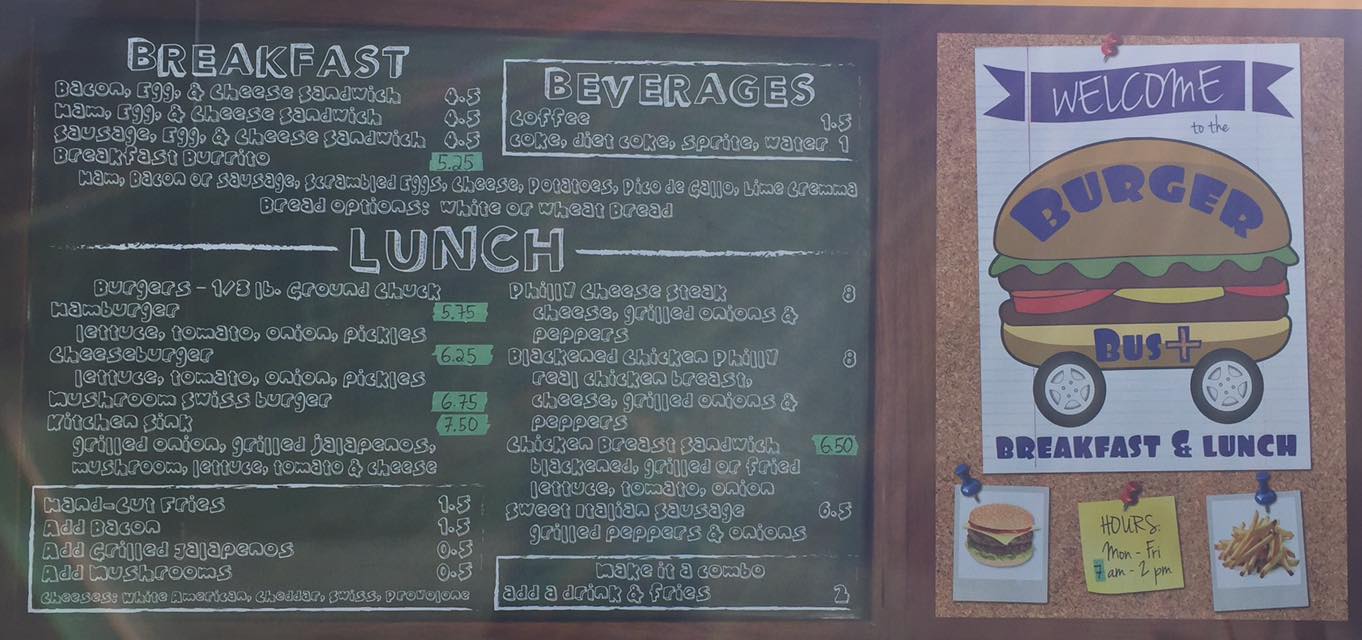 BREAKFAST
Bacon, Egg, & Cheese Sandwich 4.5
Ham, Egg, & Cheese Sandwich 4.5
Sausage, Egg, & Cheese Sandwich 4.5
Breakfast Burrito 5.25
Ham, Bacon or Sausage, Scrambled Eggs, Cheese, Potatoes, Pico de Gallo, Lime Cremma
Bread options: White or Wheat Bread
BEVERAGES
Coffee 1.5
Coke, Diet Coke, Sprite, Water 1
LUNCH
Burgers - 1/3 lb. Ground Chuck
Hamburger 5.75
lettuce, tomato, onion, pickles
Cheeseburger 6.25
lettuce, tomato, onion, pickles
Mushroom Swiss burger 6.75
Kitchen Sink 7.50
grilled onion, grilled jalapenos,
mushroom, lettuce, tomato & cheese
Hand-Cut Fries 1.5
Add Bacon 1.5
Add Grilled Jalapenos 0.5
Add Mushrooms 0.5
Cheeses: White American, Cheddar, Swiss, Provolone
Philly Cheese Steak 8
cheese, grilled onions &
peppers
Blackened Chicken Philly 8
real chicken breast,
cheese, grilled onions &
peppers
Chicken Breast Sandwich 6.50
blackened, grilled or fried
lettuce, tomato, onion
Sweet Italian Sausage 6.5
grilled peppers & onions
Make it a combo
add a drink & fries 2
WELCOME
to the
BURGER
BUS+
BREAKFAST & LUNCH
HOURS:
Mon - Fri
7 am - 2 pm